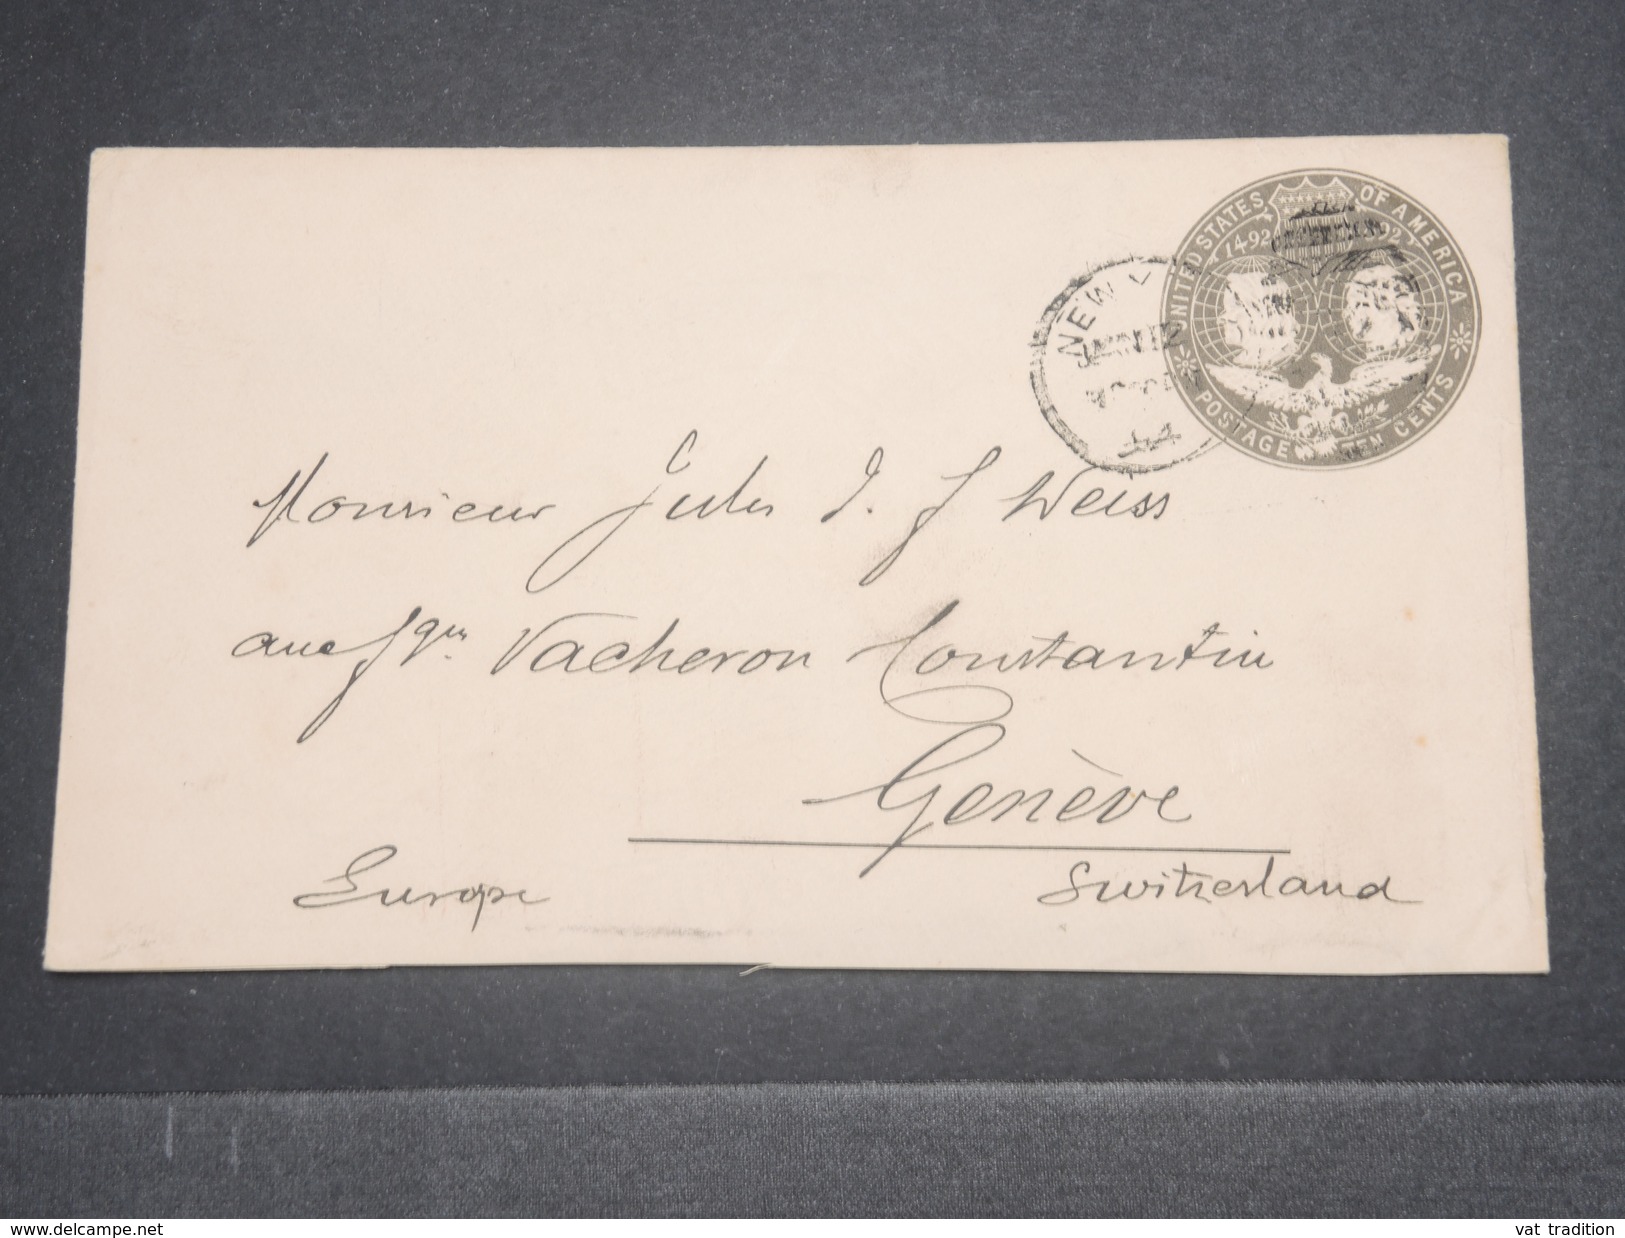 UNITED STATES OF AMERICA
1492
POSTAGE TEN CENTS
NEW Y
Monsieur Jules J. Weiss
anc Vacheron Constantin
Genève
Europe
Switzerland
www.delcampe.net
vat tradition